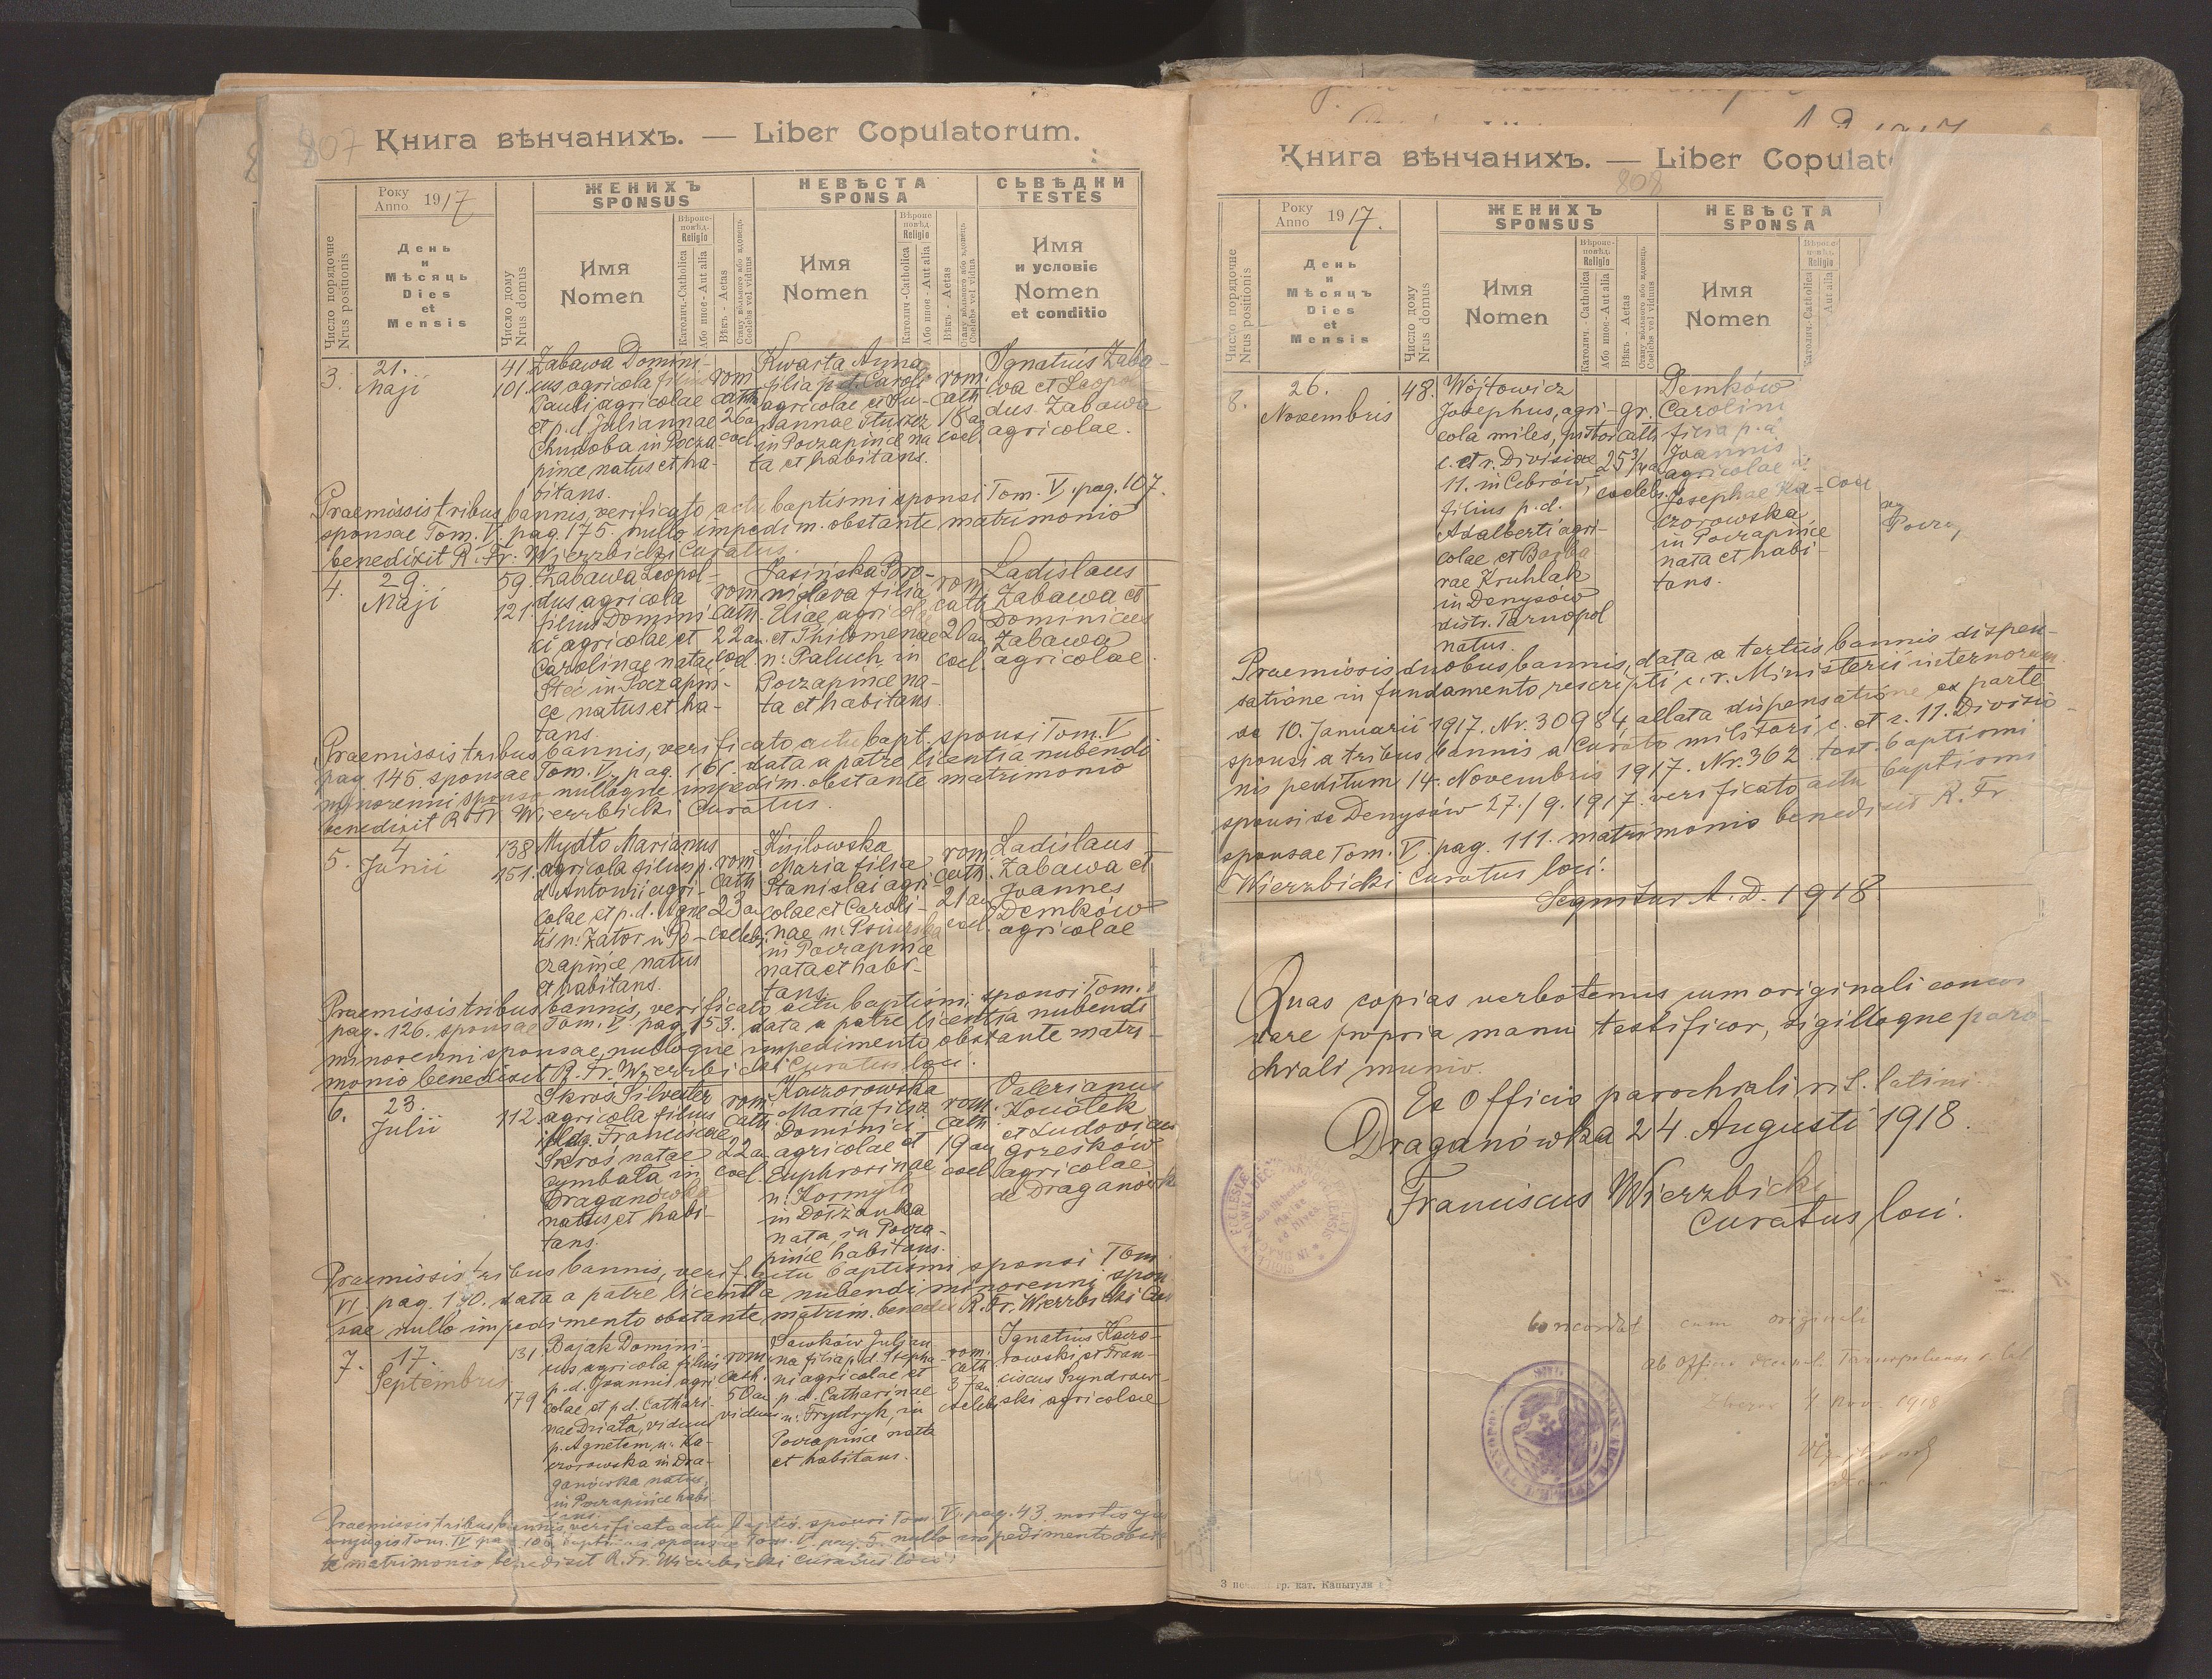 807
Книга вѣнчанихъ. — Liber Copulatorum.
Року
Anno 1917
ЖЕНИХЪ
SPONSUS
НЕВѢСТА
SPONSA
СЬВѢДКИ
TESTES
Число порядочне
Nrus positionis
День
и
Мѣсяць
Dies
et
Mensis
Число дому
Nrus domus
Имя
Nomen
Вѣроис-
повѣд.
Religio
Католич.-Catholica
Або инное-Aut alia
Вѣкъ - Aetas
Стану вôльного або вдовець
Coelebs vel viduus
Имя
Nomen
Religio
Католич.-Catholica
Або инное-Aut alia
Вѣкъ - Aetas
Имя
и условіе
Nomen
et conditio
3.
21.
Maji
41.
101.
Zabawa Domini-
cus agricola filius
Pauli agricolae
et p.d. Juliannae
Chudoba in Pocza-
pińce natus et ha-
bitans.
rom.
cath.
26 a.
coel.
Kwarta Anna
filia p.d. Caroli
agricolae et Su-
sannae Tluszcz
in Poczapińce na
ta et habitans.
rom.
cath.
18 a.
coel.
Ignatius Zaba-
wa et Leopol
dus Zabawa
agricolae.
Praemissis tribus bannis, verificato actu baptismi sponsi Tom. V. pag. 107.
sponsae Tom. V. pag. 175. nullo impedim. obstante matrimonio
benedixit R. Fr. Wierzbicki Curatus.
4.
29.
Maji
59.
121.
Zabawa Leopol-
dus agricola
filius Domini
ci agricolae et
Carolinae natae
Steć in Poczapiń-
ce natus et ha-
tans.
rom.
cath.
22 an.
coel.
Jasińska Bro-
nislava filia
Eliae agricolae
et Philomenae
n: Paluch in
Poczapińce na-
ta et habitans.
rom.
cath.
20 an
coel.
Ladislaus
Zabawa et
Dominicus
Zabawa
agricolae.
Praemissis tribus bannis, verificato actu bapt. sponsi Tom. V
pag. 145. sponsae Tom. V. pag. 161. data a patre licentia nubendi
minorenni sponsae nulloque impedim. obstante matrimonio
benedixit R. Fr. Wierzbicki Curatus.
5.
4
Junii
138
151.
Mydło Marianus
agricola filius p.
d. Antonii agri-
colae et p.d. Agne
tis n: Zator in Po-
czapińce natus
et habitans.
rom.
cath.
23 an
coelebs.
Kisilowska
Maria filia
Stanislai agri-
colae et Caroli-
nae n:
in Poczapińce
nata et habi-
tans.
rom.
cath.
21 an
coel.
Ladislaus
Zabawa et
Joannes
Demków
agricolae
Praemissis tribus bannis, verificato actu baptismi sponsi Tom.
pag. 126. sponsae Tom. V. pag. 153. data a patre licentia nubendi
minorenni sponsae, nulloque impedimento obstante matri-
monio benedixit R. Fr. Wierzbicki Curatus loci.
6.
23.
Julii
112.
Skroś Silvester
agricola filius
Franciscae
Skroś natae
Cymbała in
Draganówka
natus et habi-
tans.
rom.
cath.
22 an
coel.
Kaczorowska
Maria filia
Dominici
agricolae et
Euphrosinae
n: Kormyło
in Dołżanka
nata, in Pocza-
pińce habitans.
rom.
cath.
19 an
coel.
Valerianus
Kowálek
et Ludovicus
Grześków
agricolae
de Draganówka
Praemissis tribus bannis, verif. actu baptismi sponsi Tom.
VI. pag. data a patre licentia nubendi minorenni spon
sae nullo impedimento obstante, matrim. benedix. R. Fr. Wierzbicki Cur
7.
17.
Septembris
131.
179
Bajak Domini-
cus agricola filius
p.d. Joannis agri
colae et p.d. Cathari-
nae Driata, viduus
p. Agnetem n: Ka-
czorowska in Dra-
ganówka natus,
in Poczapińce habi-
tans.
rom.
cath.
50 an
viduus
Sawków Julian
na filia p.d. Stepha-
ni agricolae et
p.d. Catharinae
n: Frydryk, in
Poczapińce nata
et habitans.
rom.
cath.
37 an
coelebs
Ignatius Kaczo-
rowski et Fran-
ciscus Szyndrow-
ski agricolae
Praemissis tribus bannis, verificato actu baptis. sponsi Tom. V. pag. 43. mortis ejus
conjugis Tom. IV. pag. 106. baptismi sponsae Tom. V. pag. 5. nullo impedimento obstan
te matrimonio benedixit R. Fr. Wierzbicki Curatus loci.
Книга вѣнчанихъ. — Liber Copulat
808
Року
Anno 1917.
ЖЕНИХЪ
SPONSUS
НЕВѢСТА
SPONSA
Число порядочне
Nrus positionis
День
и
Мѣсяцъ
Dies
et
Mensis
Число дому
Nrus domus
Имя
Nomen
Вѣроис-
повѣд.
Religio
Католич.-Catholica
Або инное-Aut alia
Вѣкъ - Aetas
Стану вôльного або вдовець
Coelebs vel viduus
Имя
Nomen
Religio
Католич.-Catholica
Aut alia
8.
26.
Novembris
48.
Wójtowicz
Josephus, agri-
cola miles, pistor
c. et r. Divisiae
11. in Cebrów,
filius p.d.
Adalberti agri-
colae et Barba
rae Kruhlak
in Denysów
distr. Tarnopol
natus.
gr.
cath
25 3/4 a
coelebs.
Demków
Carolini
filia p. d
Joannis
agricolae
Josephae Ka-
czorowska
in Poczapińce
nata et habi-
tans.
coel
Pocza
Praemissis duobus bannis, data a tertiis bannis dispen-
satione in fundamento rescripti c.r. Ministerii internorum
de 10. Januarii 1917. Nr. 30984, allata dispensatione ex parte
sponsi a tribus bannis a Curato militari c. et r. 11. Divisio-
nis peditum 14. Novembris 1917. Nr. 362. test. baptismi
sponsi de Denysów 27./9.1917. verificato actu baptismi
sponsae Tom. V. pag. 111. matrimonio benedixit R. Fr.
Wierzbicki Curatus loci.
Sequitur A.D. 1918.
Quas copias verbotenus cum originali concor
dare propria manu testificor, sigilloque paro-
chiali munio.
Ex Officio parochiali rit. latini.
Draganówka 24 Augusti 1918.
Franciscus Wierzbicki
Curatus loci.
Concordat cum originali
4 Nov. 1918